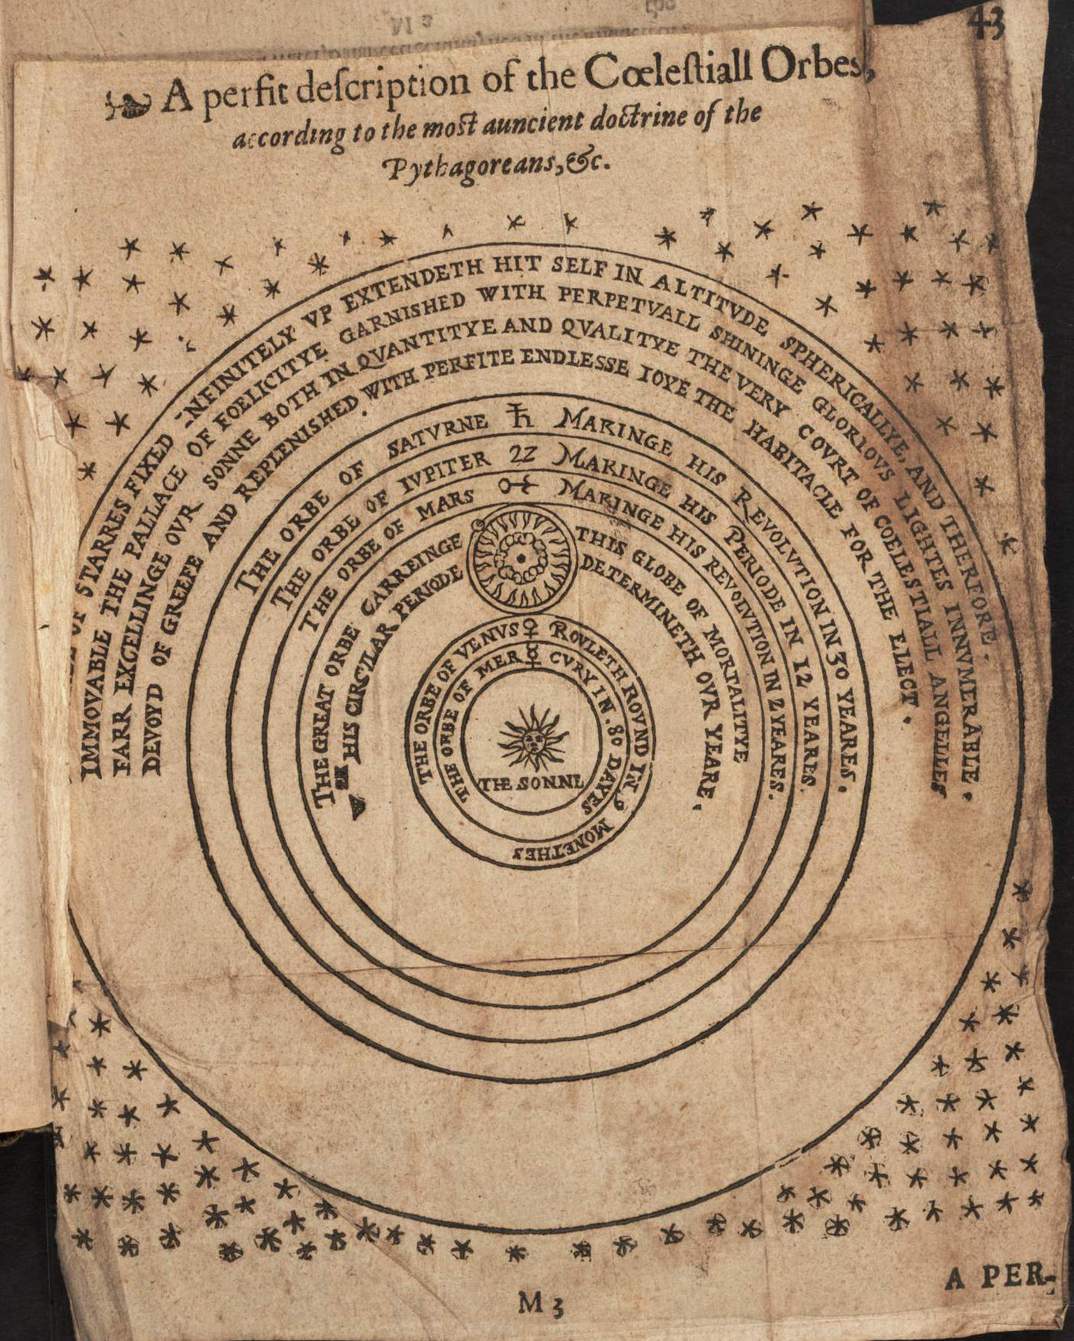 43
A perfit deſcription of the Cœleſtiall Orbes,
according to the moſt auncient doctrine of the
Pythagoreans, &c.
OF STARRES FIXED NFINITELY VP EXTENDETH HIT SELF IN ALTITVDE SPHERICALLYE, AND THERFORE.
IMMOVABLE THE PALLACE OF FOELICITYE GARNISHED WITH PERPETVALL SHININGE GLORIOVS LIGHTES INNVMERABLE.
FARR EXCELLINGE OVR SONNE BOTH IN QVANTITYE AND QVALITYE THE VERY COVRT OF COELESTIALL ANGELLES
DEVOYD OF GREEFE AND REPLENISHED WITH PERFITE ENDLESSE IOYE THE HABITACLE FOR THE ELECT.
THE ORBE OF SATVRNE ♄ MAKINGE HIS REVOLVTION IN 30 YEARES.
THE ORBE OF IVPITER ♃ MAKINGE HIS PERIODE IN 12 YEARES.
THE ORBE OF MARS ♂ MAKINGE HIS REVOLVTION IN 2 YEARES.
THE GREAT ORBE CARREINGE THIS GLOBE OF MORTALITYE
HIS CIRCVLAR PERIODE DETERMINETH OVR YEARE.
THE ORBE OF VENVS ♀ ROVLETH ROVND IN 9 MONETHES
THE ORBE OF MER ☿ CVRY IN 80 DAYES
THE SONNE
A PER-
M 3